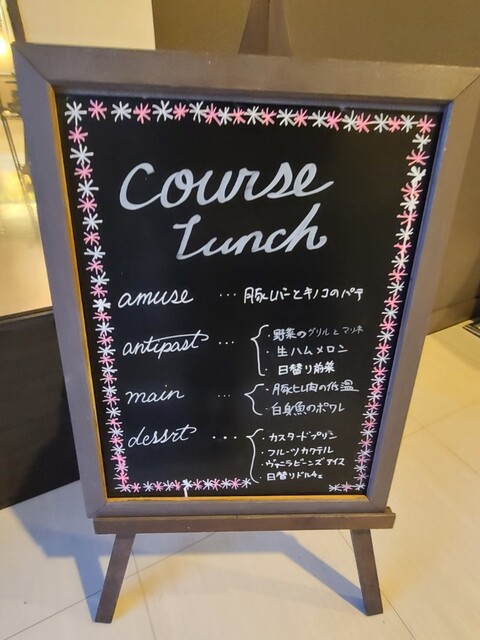 Course
Lunch
amuse ... 豚レバーとキノコのパテ
antipast ... ・野菜のグリルとマリネ
・生ハムメロン
・日替り前菜
main ... ・豚ヒレ肉の低温
・白身魚のポワレ
dessrt ... ・カスタードプリン
・フルーツカクテル
・ヴァニラビーンズアイス
・日替りドルチェ